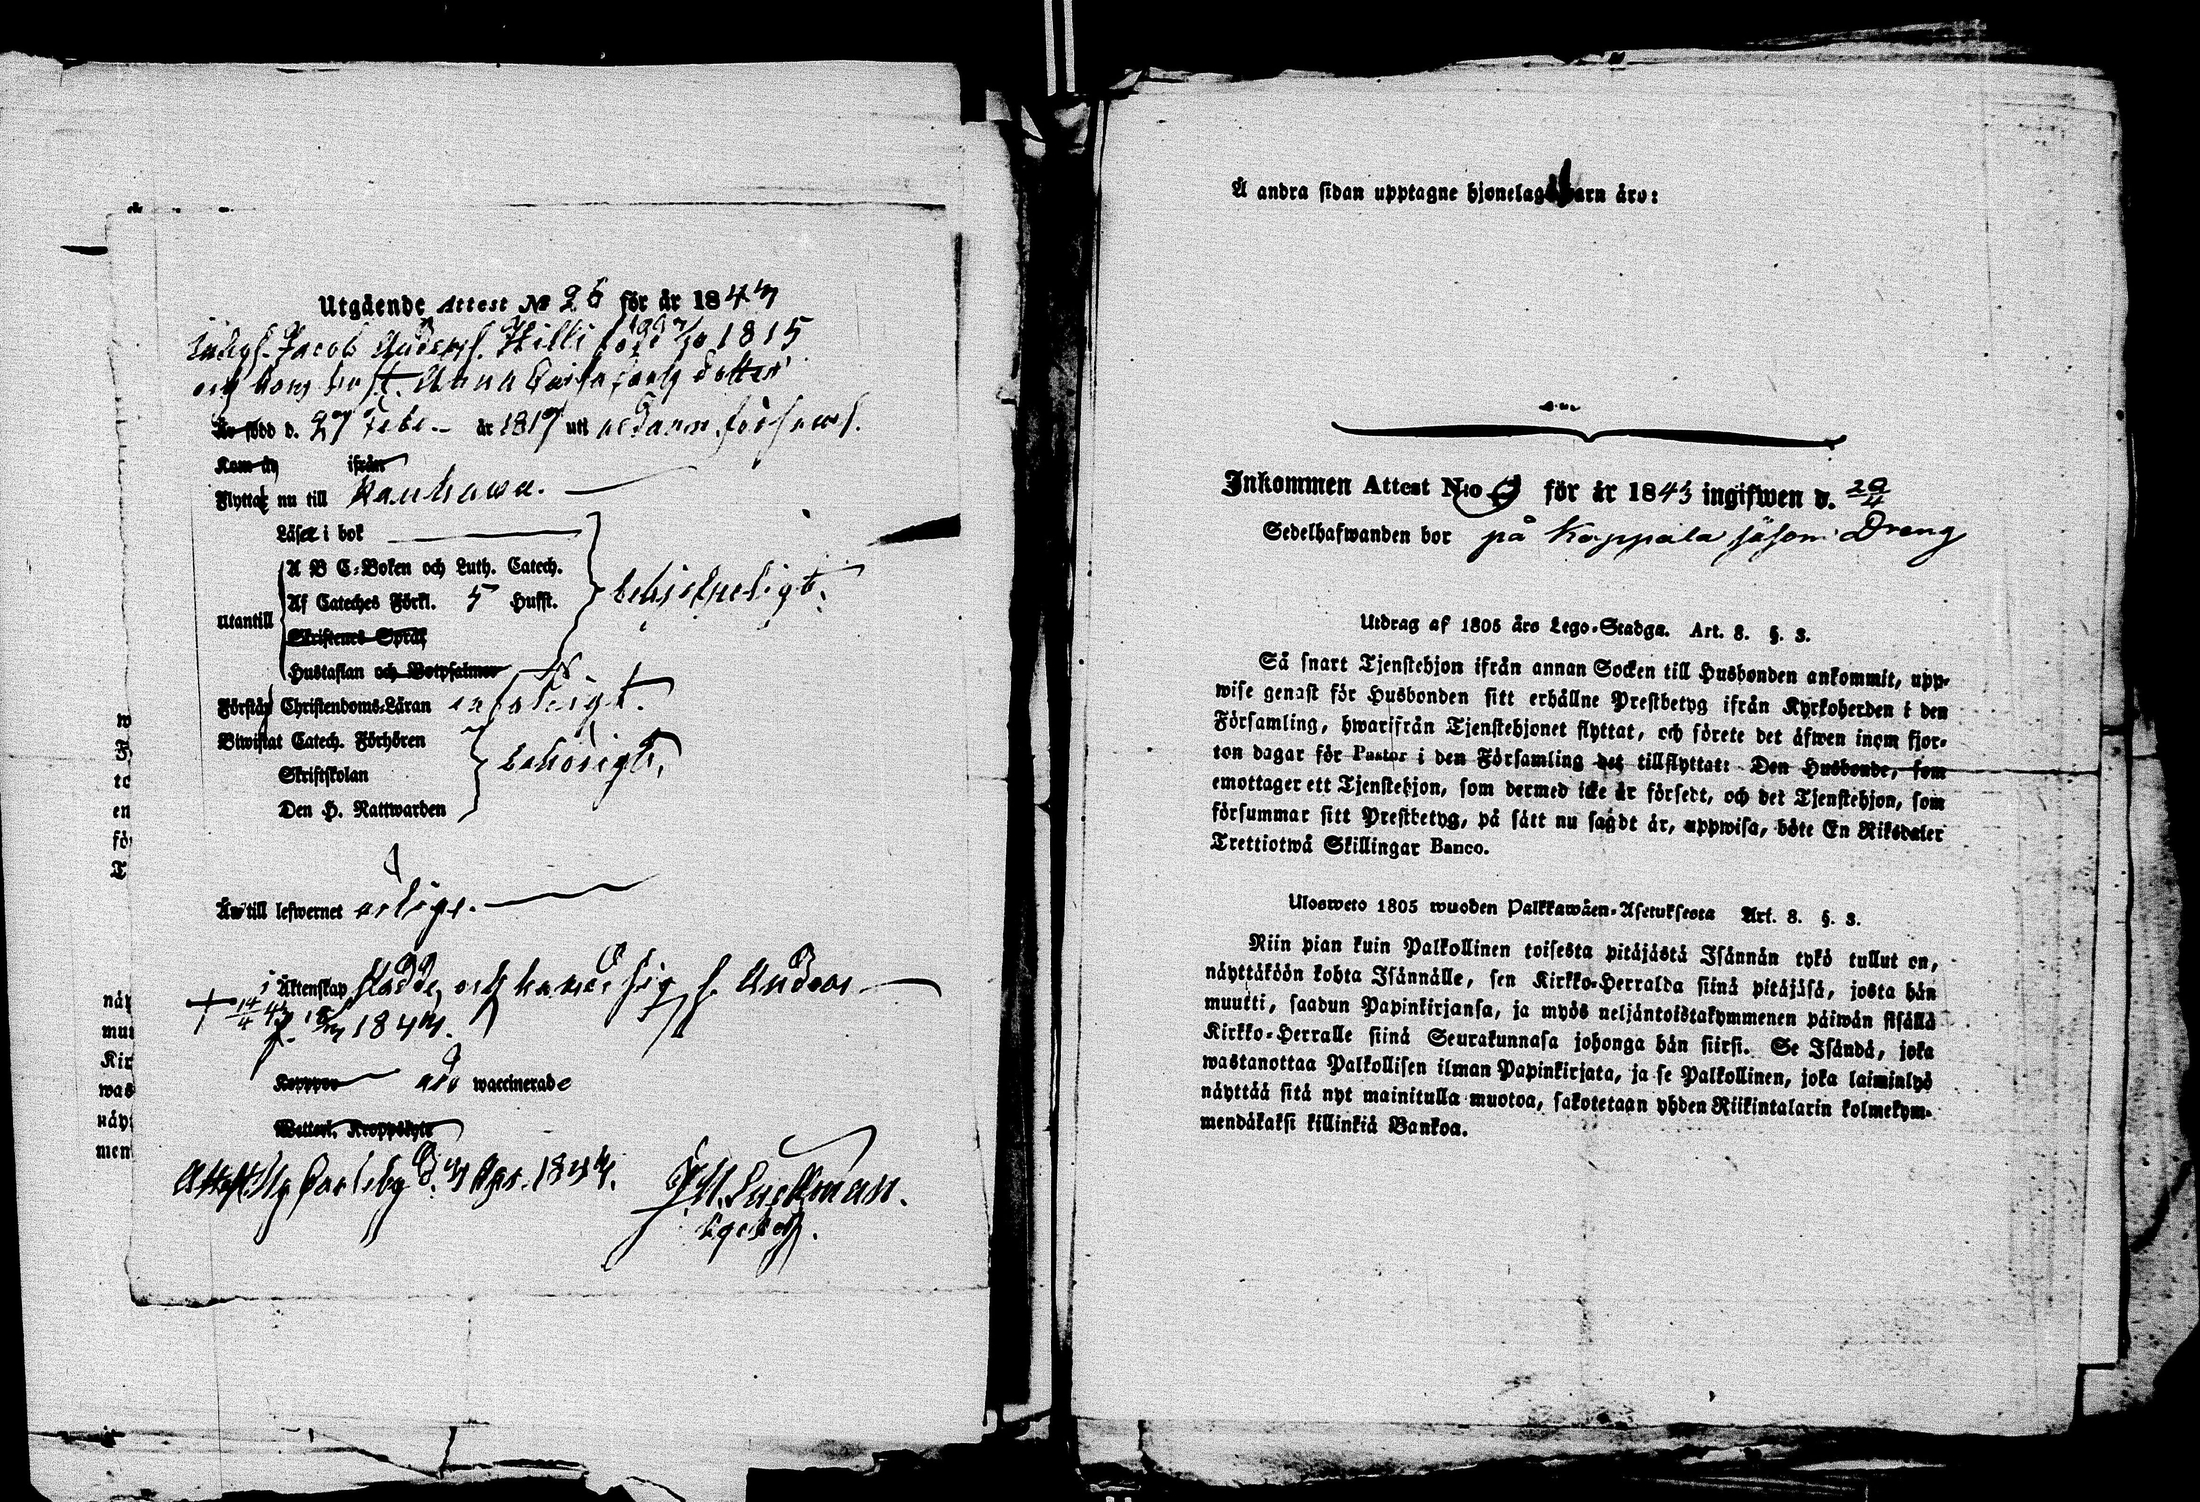 Utgående Attest No 26 för år 1843
Jacob Anders. Hilli född 1815
och hans hust. Anna Caisa dotter
Är född d. 27 Febr. år 1817 uti förs.
Kom ifrån
Flyttar nu till Kauhawa.
Läser i bok
A B C-Boken och Luth. Catech.
Af Cateches Förkl. 5 Hufst.
Utantill
Skriftenes Språk
Hustaflan och Botpsalmer
Förstår Christendoms-Läran enfaldigt.
Biwistat Catech. Förhören
behörigt.
Skriftskolan
Den H. Nattwarden
Är till lefwernet ärlige.
i Äktenskap stadde, och hs. Anders
+ 14/4 43 1843.
Koppor äro waccinerade
Attest. Ny Carleby d. Apr. 1843.
w
F
to
en
fö
T
näy
muu
Kir
was
näy
men
Å andra sidan upptagne hjonelags barn äro:
Inkommen Attest N:o för år 1843 ingifwen d. 20/4
Sedelhafwanden bor på Kappala såsom Dreng
Utdrag af 1805 års Lego-Stadga. Art. 8. §. 3.
Så snart Tjenstehjon ifrån annan Socken till Husbonden ankommit, upp-
wise genast för Husbonden sitt erhållne Prestbetyg ifrån Kyrkoherden i den
Församling, hwarifrån Tjenstehjonet flyttat, och förete det äfwen inom fjor-
ton dagar för Pastor i den Församling det tillflyttat: Den Husbonde, som
emottager ett Tjenstehjon, som dermed icke är försedt, och det Tjenstehjon, som
försummar sitt Prestbetyg, på sätt nu sagdt är, uppwisa, böte En Riksdaler
Trettiotwå Skillingar Banco.
Ulosweto 1805 wuoden Palkkawäen-Asetuksesta Art. 8. §. 3.
Niin pian kuin Palkollinen toisesta pitäjästä Isännän tykö tullut on,
näyttäköön kohta Isännälle, sen Kirkko-Herralda siinä pitäjäsä, josta hän
muutti, saadun Papinkirjansa, ja myös neljäntoistakymmenen päiwän sisällä
Kirkko-Herralle siinä Seurakunnasa johonga hän siirsi. Se Isändä, joka
wastanottaa Palkollisen ilman Papinkirjata, ja se Palkollinen, joka laiminlyö
näyttää sitä nyt mainitulla muotoa, sakotetaan yhden Riikintalarin kolmekym-
mendäkaksi killinkiä Bankoa.